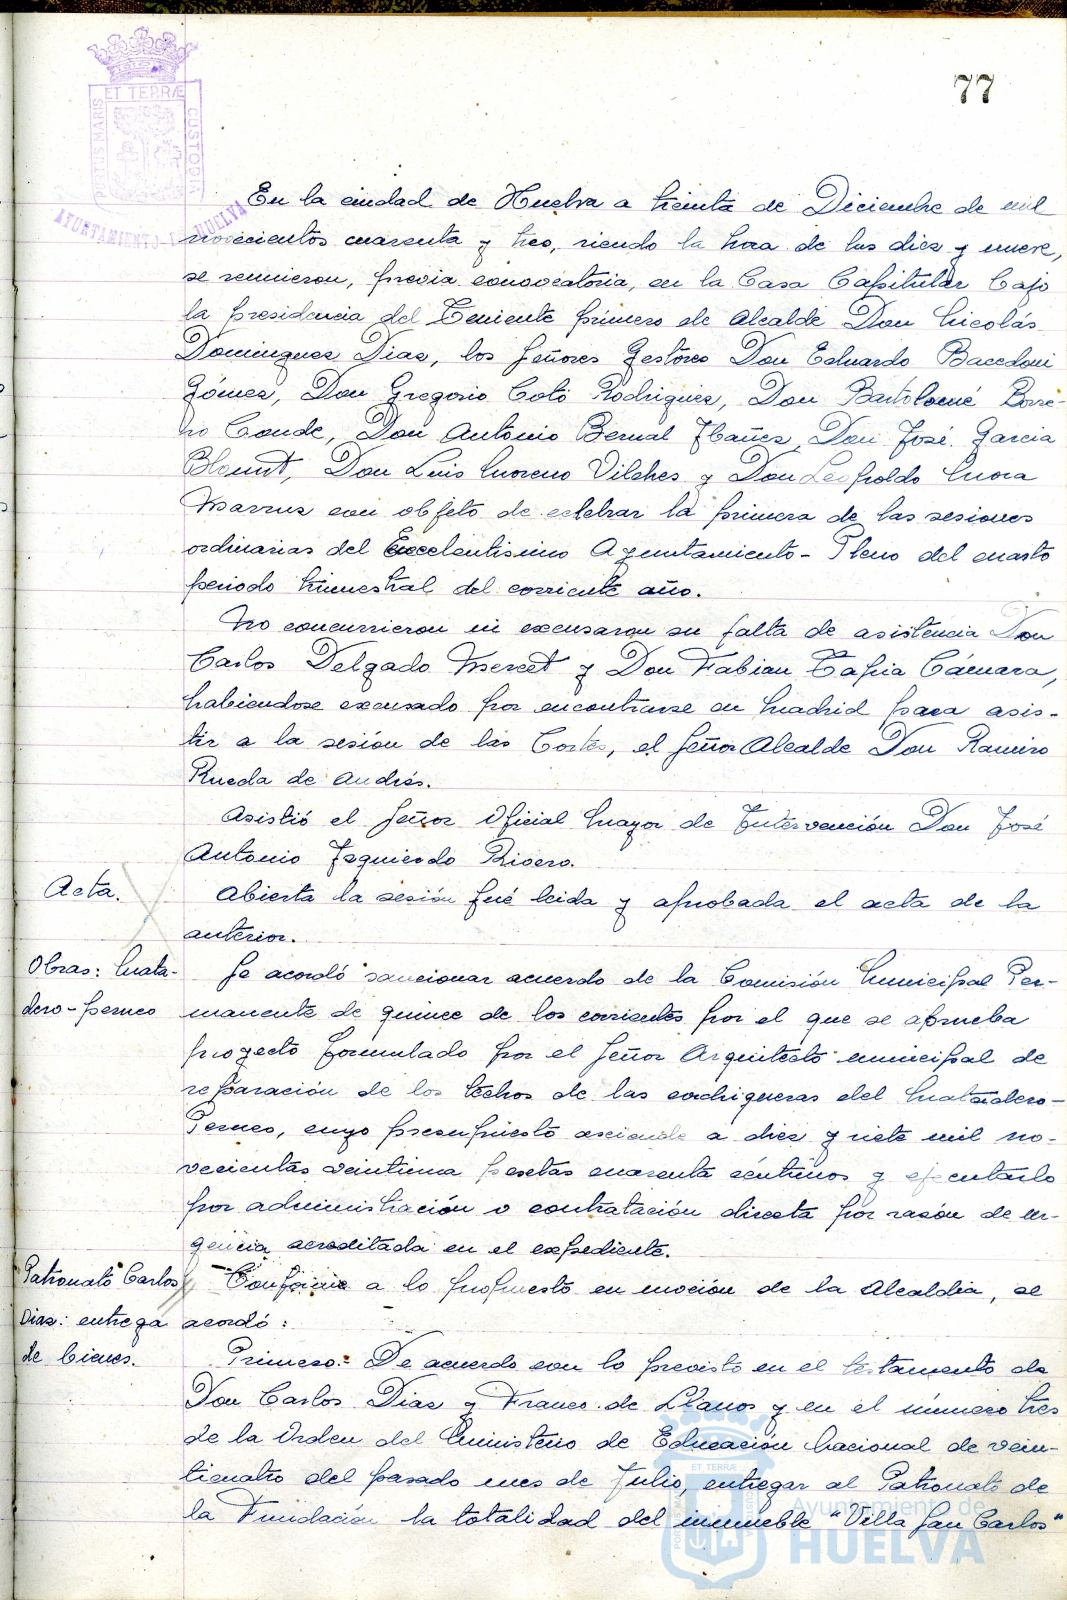 77
PORTUS MARIS ET TERRÆ CUSTODIA
AYUNTAMIENTO HUELVA
En la ciudad de Huelva a treinta de Diciembre de mil
novecientos cuarenta y tres, siendo la hora de las diez y nueve,
se reunieron, previa convocatoria, en la Casa Capitular bajo
la presidencia del Teniente primero de Alcalde Don Nicolás
Dominguez Diaz, los Señores Gestores Don Eduardo Bacedoni
Gómez, Don Gregorio Coto Rodriguez, Don Bartolomé Borre-
ro Conde, Don Antonio Bernal Ibañez, Don José Garcia
Blount, Don Luis Moreno Vilches y Don Leopoldo Mora
con objeto de celebrar la primera de las sesiones
ordinarias del Excelentisimo Ayuntamiento-Pleno del cuarto
periodo trimestral del corriente año.
No concurrieron ni excusaron su falta de asistencia Don
Carlos Delgado Mercet y Don Fabian Tapia Cámara,
habiendose excusado por encontrarse en Madrid para asis-
tir a la sesión de las Cortes, el Señor Alcalde Don Ramiro
Rueda de Andrés.
Asistió el Señor Oficial Mayor de Intervención Don José
Antonio Izquierdo Rivero.
Acta.
Abierta la sesión fué leida y aprobada el acta de la
anterior.
Obras: Mata-
dero-perneo
Se acordó sancionar acuerdo de la Comisión Municipal Per-
manente de quince de los corrientes por el que se aprueba
proyecto formulado por el Señor Arquitecto municipal de
reparación de los techos de las cochiqueras del Matadero-
Perneo, cuyo presupuesto asciende a diez y siete mil no-
vecientas veintiuna pesetas cuarenta céntimos y ejecutarlo
por administración o contratación directa por razón de ur-
gencia acreditada en el expediente.
Patronato Carlos
Diaz: entrega
de bienes.
Conforme a lo propuesto en moción de la Alcaldia, se
acordó:
Primero.- De acuerdo con lo previsto en el testamento de
Don Carlos Diaz y Franco de Llanos y en el número tres
de la Orden del Ministerio de Educación Nacional de vein-
ticuatro del pasado mes de Julio, entregar al Patronato de
la Fundación la totalidad del inmueble "Villa San Carlos"
Ayuntamiento de
HUELVA